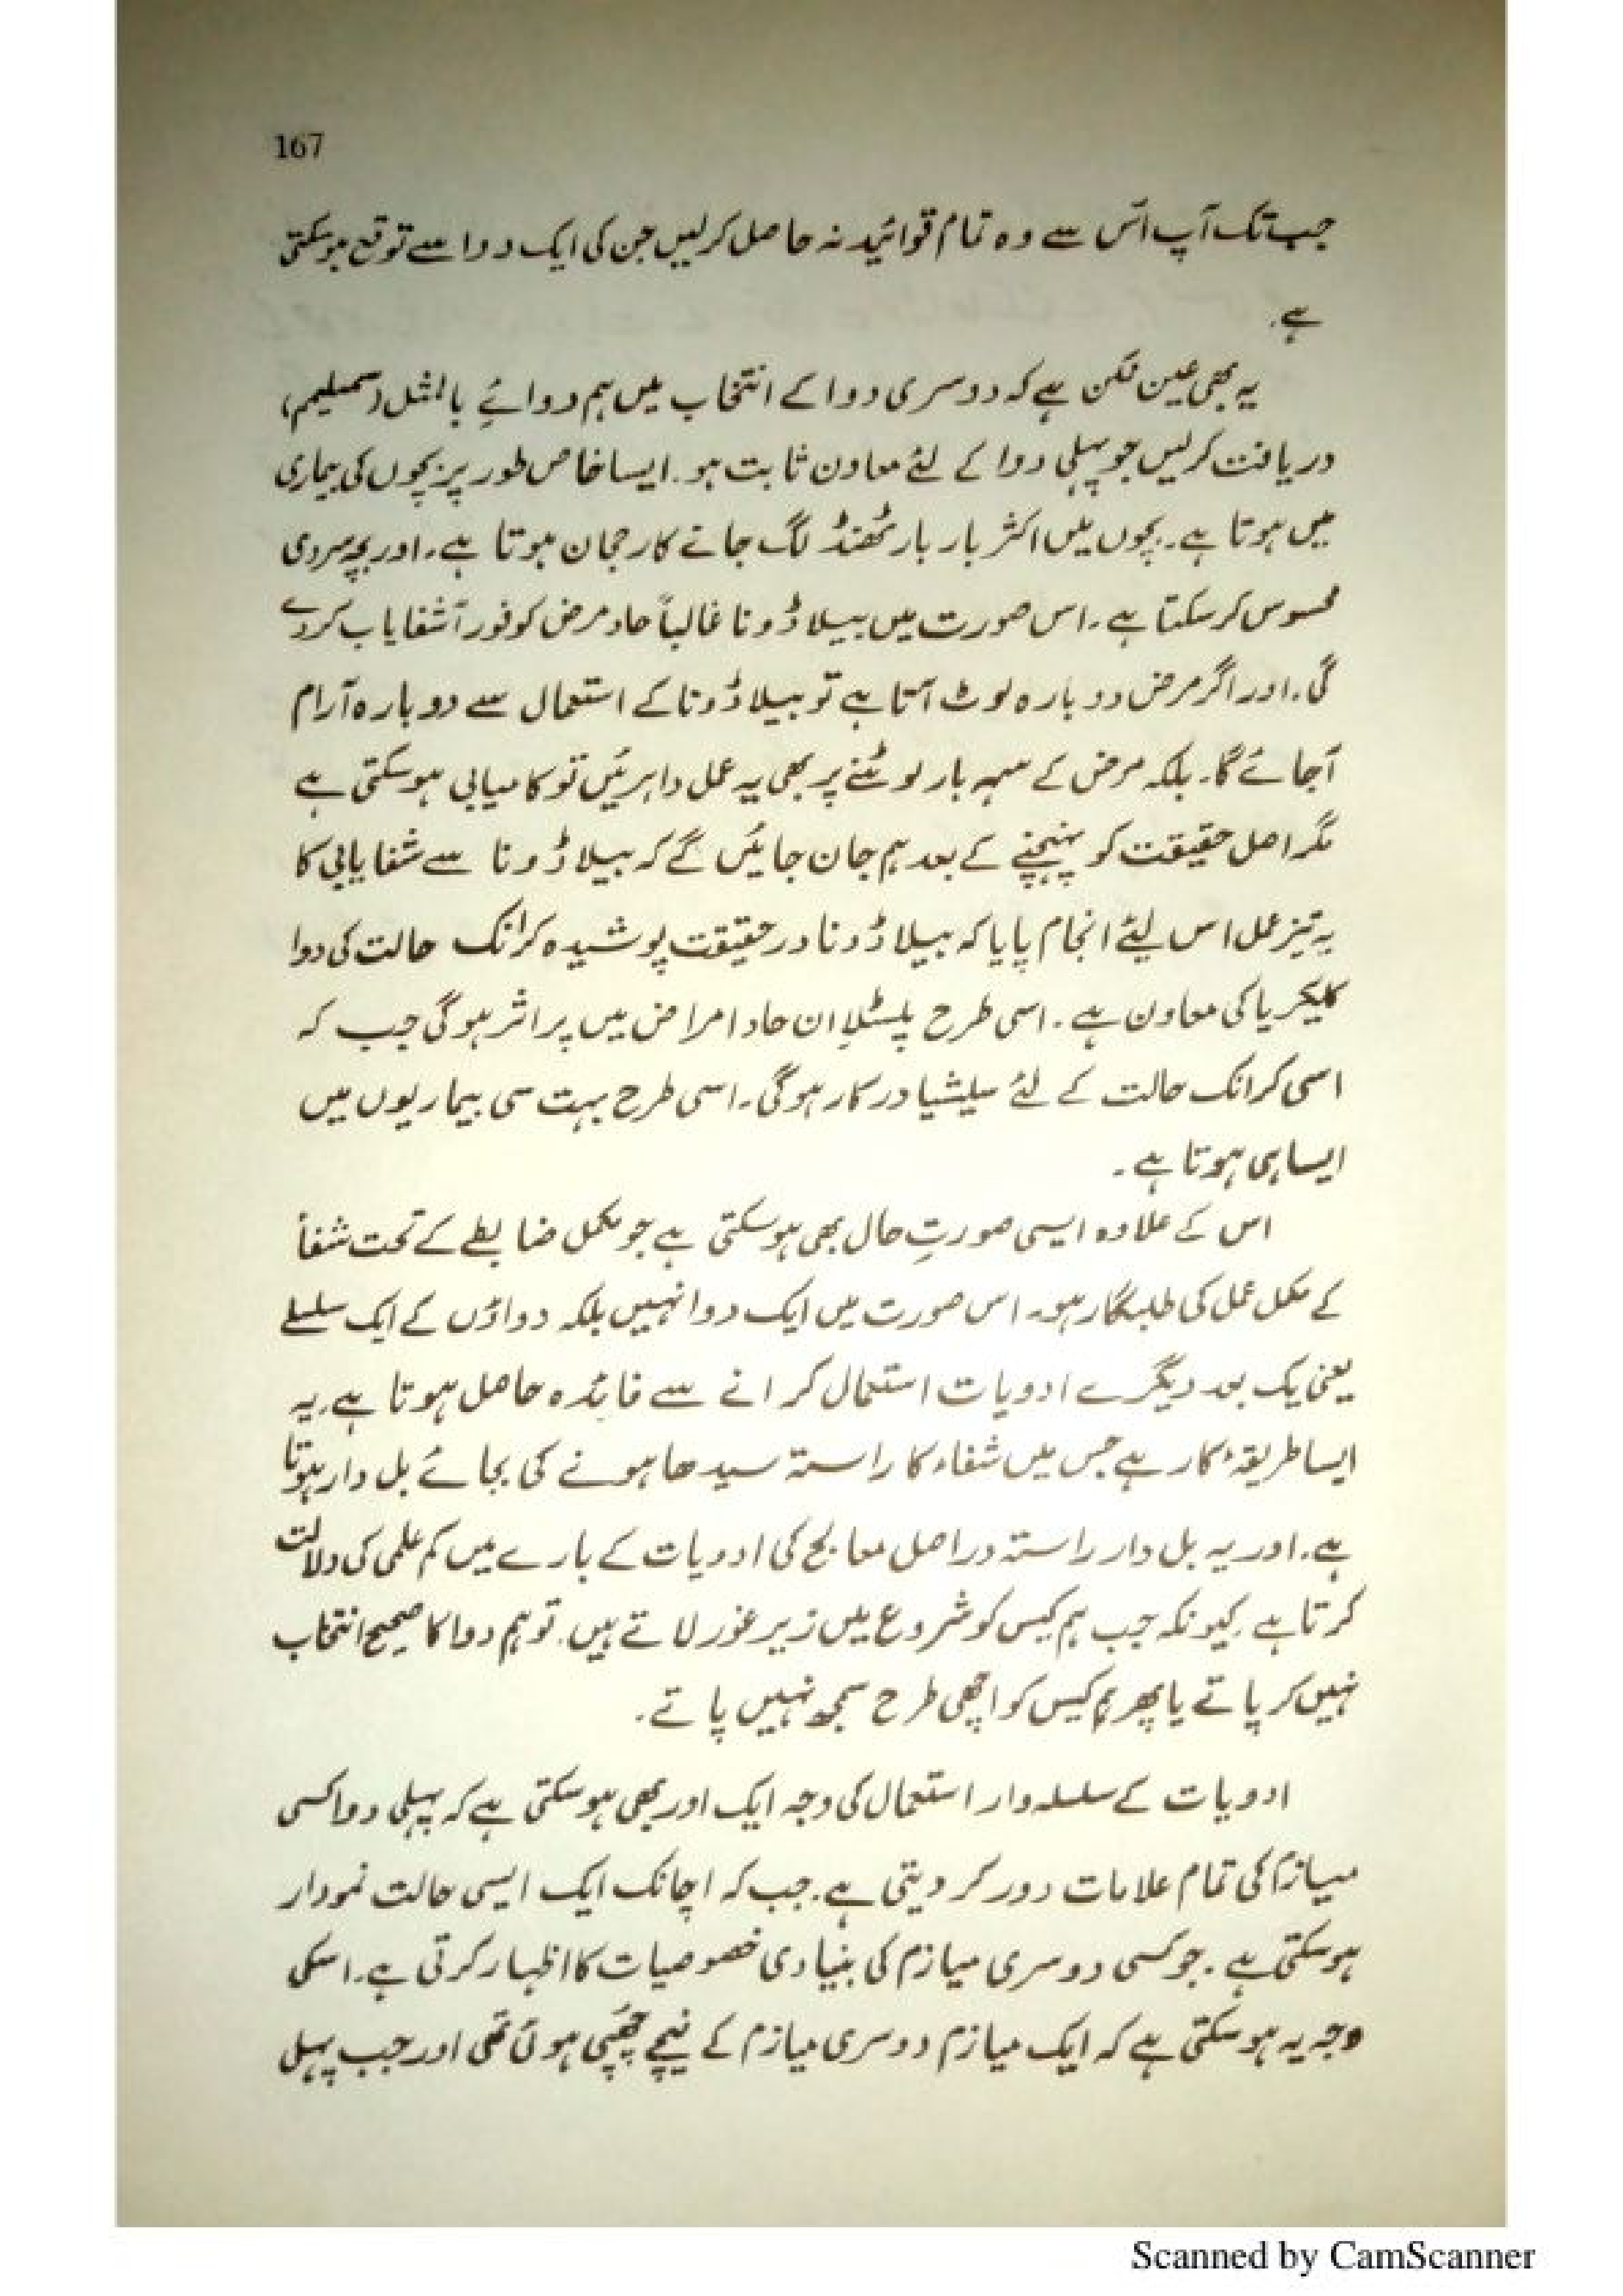 167
جب تک آپ اُس سے وہ تمام قوائید نہ حاصل کرلیں جن کی ایک دوا سے توقع ہوسکتی
ہے۔
یہ بھی عین ممکن ہے کہ دوسری دوا کے انتخاب میں ہم دوائے بالمثل (سمیلیم)
دریافت کرلیں جو پہلی دوا کے لئے معاون ثابت ہو۔ ایسا خاص طور پر بچوں کی بیماری
میں ہوتا ہے۔ بچوں میں اکثر بار بار ٹھنڈ لگ جانے کا رحجان ہوتا ہے۔ اور بچہ سردی
محسوس کرسکتا ہے۔ اس صورت میں بیلاڈونا غالباً حاد مرض کو فوراً شفایاب کردے
گی۔ اور اگر مرض دوبارہ لوٹ آتا ہے تو بیلاڈونا کے استعمال سے دوبارہ آرام
آجائے گا۔ بلکہ مرض کے سہہ بار لوٹنے پر بھی یہ عمل داہرئیں تو کامیابی ہوسکتی ہے
مگر اصل حقیقت کو پہنچنے کے بعد ہم جان جائیں گے کہ بیلاڈونا سے شفایابی کا
یہ تیز عمل اس لیئے انجام پایا کہ بیلاڈونا درحقیقت پوشیدہ کرانک حالت کی دوا
کلیکریا کی معاون ہے۔ اسی طرح پلسٹلا ان حاد امراض میں پراثر ہوگی جب کہ
اسی کرانک حالت کے لئے سیلشیا درکار ہوگی۔ اسی طرح بہت سی بیماریوں میں
ایسا ہی ہوتا ہے۔
اس کے علاوہ ایسی صورتِ حال بھی ہوسکتی ہے جو مکمل ضابطے کے تحت شفأ
کے مکمل عمل کی طلبگار ہو۔ اس صورت میں ایک دوا نہیں بلکہ دواؤں کے ایک سلسلے
یعنی یک بعد دیگرے ادویات استعمال کرانے سے فائدہ حاصل ہوتا ہے۔ یہ
ایسا طریقۂ کار ہے جس میں شفاء کا راستہ سیدھا ہونے کی بجائے بل دار ہوتا
ہے۔ اور یہ بل دار راستہ دراصل معالج کی ادویات کے بارے میں کم علمی کی دلالت
کرتا ہے۔ کیونکہ جب ہم کیس کو شروع میں زیر غور لاتے ہیں۔ تو ہم دوا کا صحیح انتخاب
نہیں کر پاتے یا پھر ہم کیس کو اچھی طرح سمجھ نہیں پاتے۔
ادویات کے سلسلہ وار استعمال کی وجہ ایک اور بھی ہوسکتی ہے کہ پہلی دوا کسی
میازم کی تمام علامات دور کر دیتی ہے۔ جب کہ اچانک ایک ایسی حالت نمودار
ہوسکتی ہے۔ جو کسی دوسری میازم کی بنیادی خصوصیات کا اظہار کرتی ہے۔ اسکی
وجہ یہ ہوسکتی ہے کہ ایک میازم دوسری میازم کے نیچے چھُپی ہوئی تھی اور جب پہلی
Scanned by CamScanner